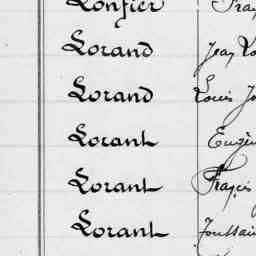 Lonfier
Lorand Jean
Lorand Louis Jo
Lorant Eugèn
Lorant François
Lorant Toussain